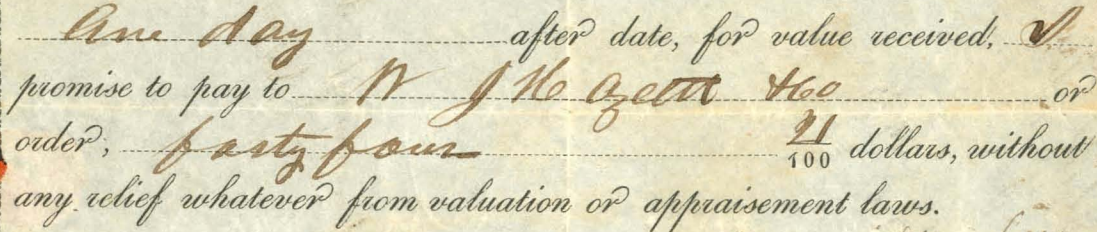 One day after date, for value received, I
promise to pay to W J Hazlett & Co or
order, forty four 21/100 dollars, without
any relief whatever from valuation or appraisement laws.